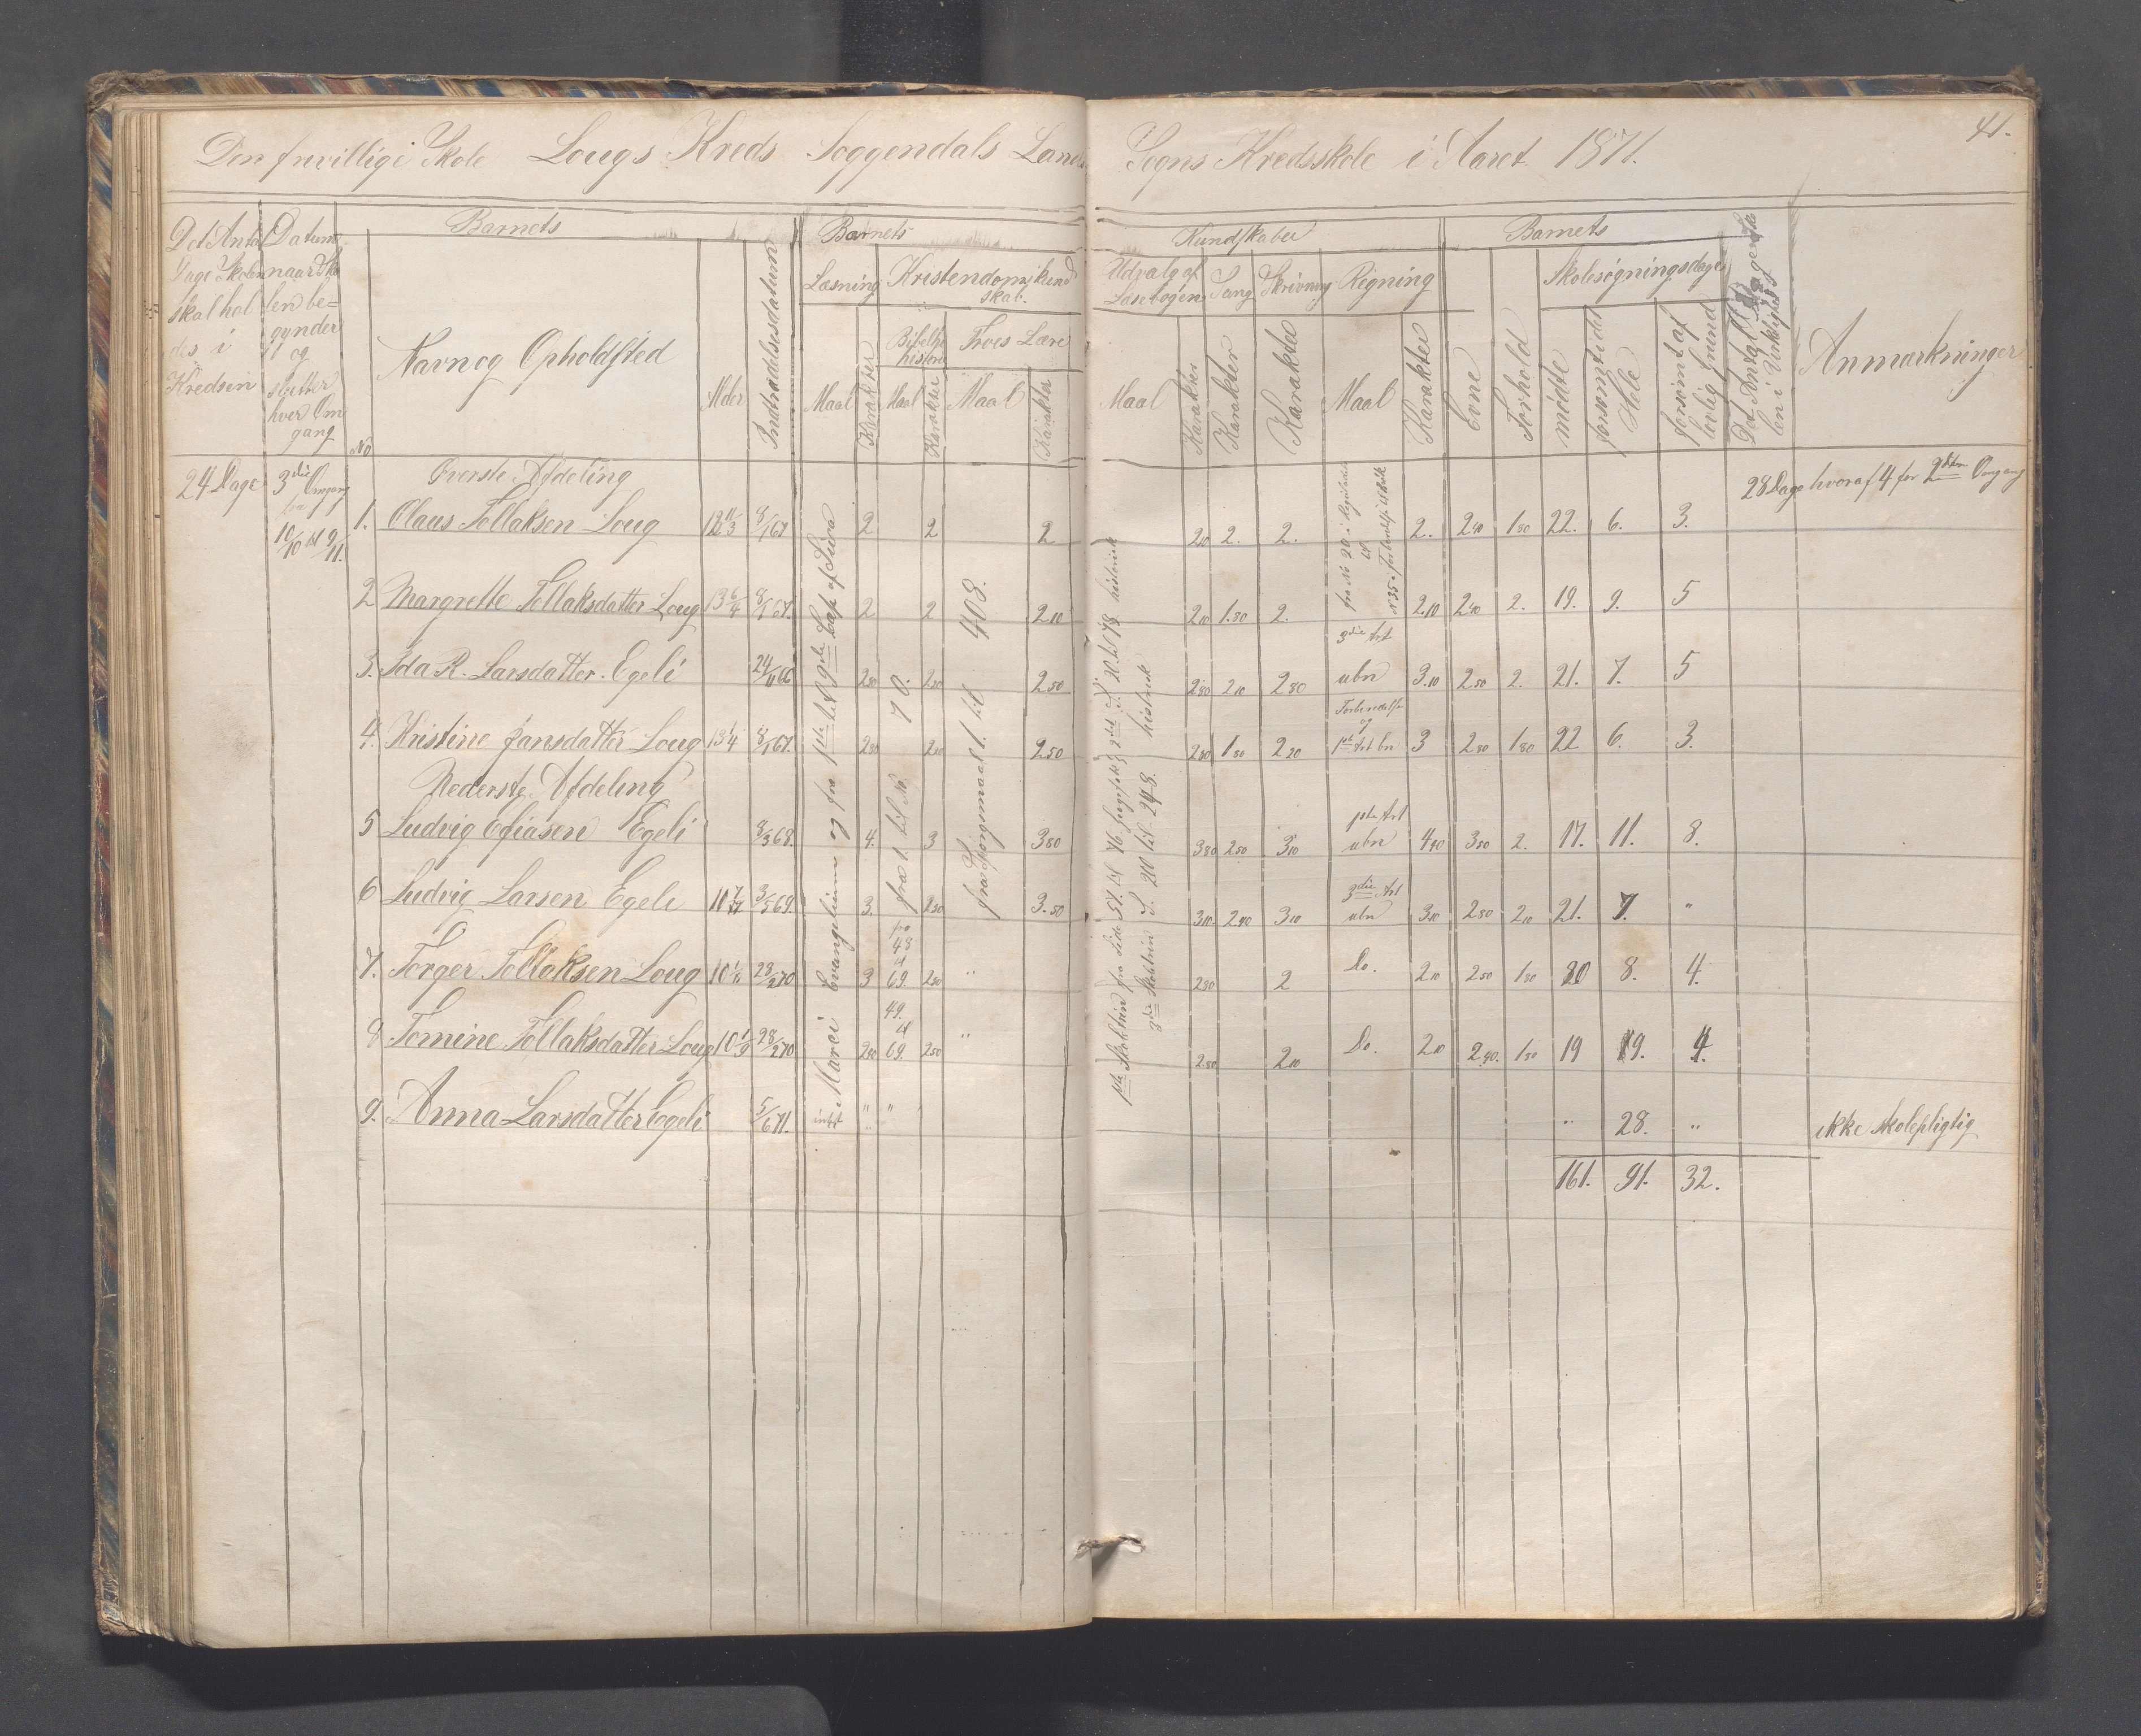 Den frivillige Skole Lougs Kreds Soggendals Land
Sogns Kredsskole i Aaret 1871.
41.
Det Antal Dage Skolen skal holdes i Kredsen
Datum naar Skolen begynder og slutter hver Omgang
Barnets
No
Navn og Opholdssted
Alder
Indtrædelsesdatum
Barnets
Læsning
Maal
Karakter
Kristendomskundskab.
Bibelhistorie
Maal
Karakter
Troes Lære
Maal
Karakter
Kundskaber
Udvalg af Læsebogen
Maal
Karakter
Sang
Karakter
Skrivning
Karakter
Regning
Maal
Karakter
Barnets
Evne
Forhold
Skolesøgningsdage
mødte
forsømt i det Hele
forsømt af lovlig Grund
Det Antal Dage Skolen i Virkelighed
Anmærkninger
24 Dage
3die Omgang fra 10/10 til 9/11.
Øverste Afdeling
28 Dage hvoraf 4 for 2den Omgang
1. Olaus Tollaksen Loug 8/1 67 2 2 2 2 10 2. 2. 2. 2 40 1 80 22. 6. 3.
2 Margrette Tollaksdatter Loug 13 6/4 8/1 67. 2 2 2 10 2 10 1.80 2. 2.10 2 40 2. 19. 9. 5
3. Ida R. Larsdatter. Egeli 24/11 66 2 50 2 50 2 50 2 80 2 10 2 80 3die Art ubn 3.10 2 50 2. 21. 7. 5
4. Kristine Jansdatter Loug 8/1 67. 2 80 2 50 2 50 2 80 1 80 2 20 Forberedelse og 1ste Art bn 3 2 80 1 80 22 6. 3.
Nederste Afdeling
5 Ludvig Efiasen Egeli 8/3 68. 4. 3 3 80 3 80 2 50 3 10 1ste Art ubn 4 40 3 50 2. 17. 11. 8.
6 Ludvig Larsen Egeli 3/5 69. 3. 2 50 3.50 3 10. 2 40 3 10 3die Art ubn 3 10 2 80 2 10 21. 7. "
7. Torger Tollaksen Loug 28/2 70 3 48 til 69. 2 50 " 2 80 2 Do. 2 10 2 50 1 80 20 8. 4.
8 Tomine Tollaksdatter Loug 10 1/9 28/2 70 2 80 49. til 69. 2 50 " 2.80 2 10 Do. 2 10 2.40. 1 80 19 9. 4.
9. Anna Larsdatter Egeli 5/6 71. intet " " " 28. " ikke skolepligtig
161. 91. 32.
Marci Evangelium og fra 1ste til
fra 1. til No 70.
fra Spørgsmaal 1. til 408.